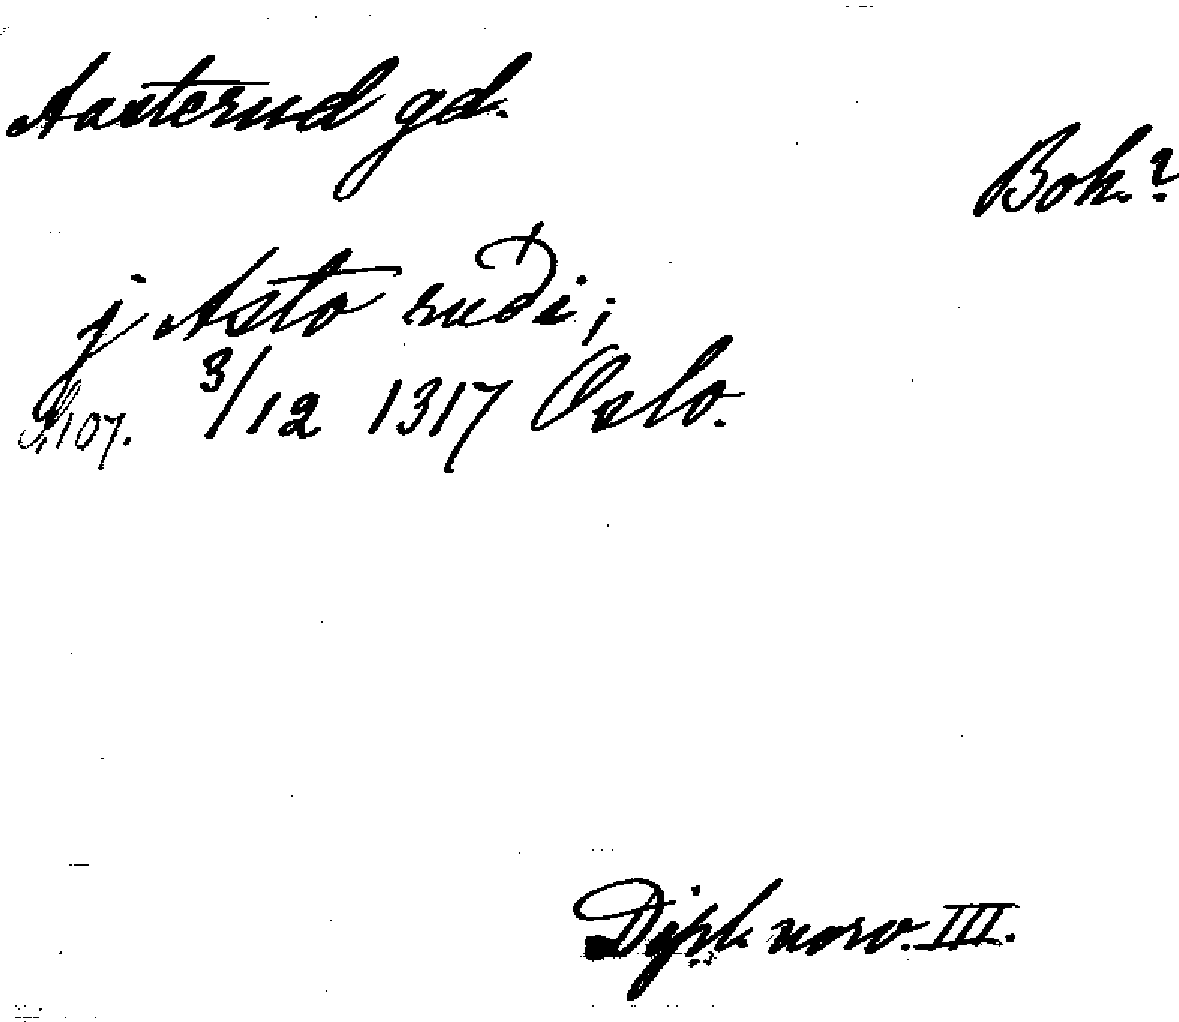 Aasterud gd.
Boh.?
j Asto ruði;
S. 107. 3/12 1317 Oslo.
Dipl. norv. III.